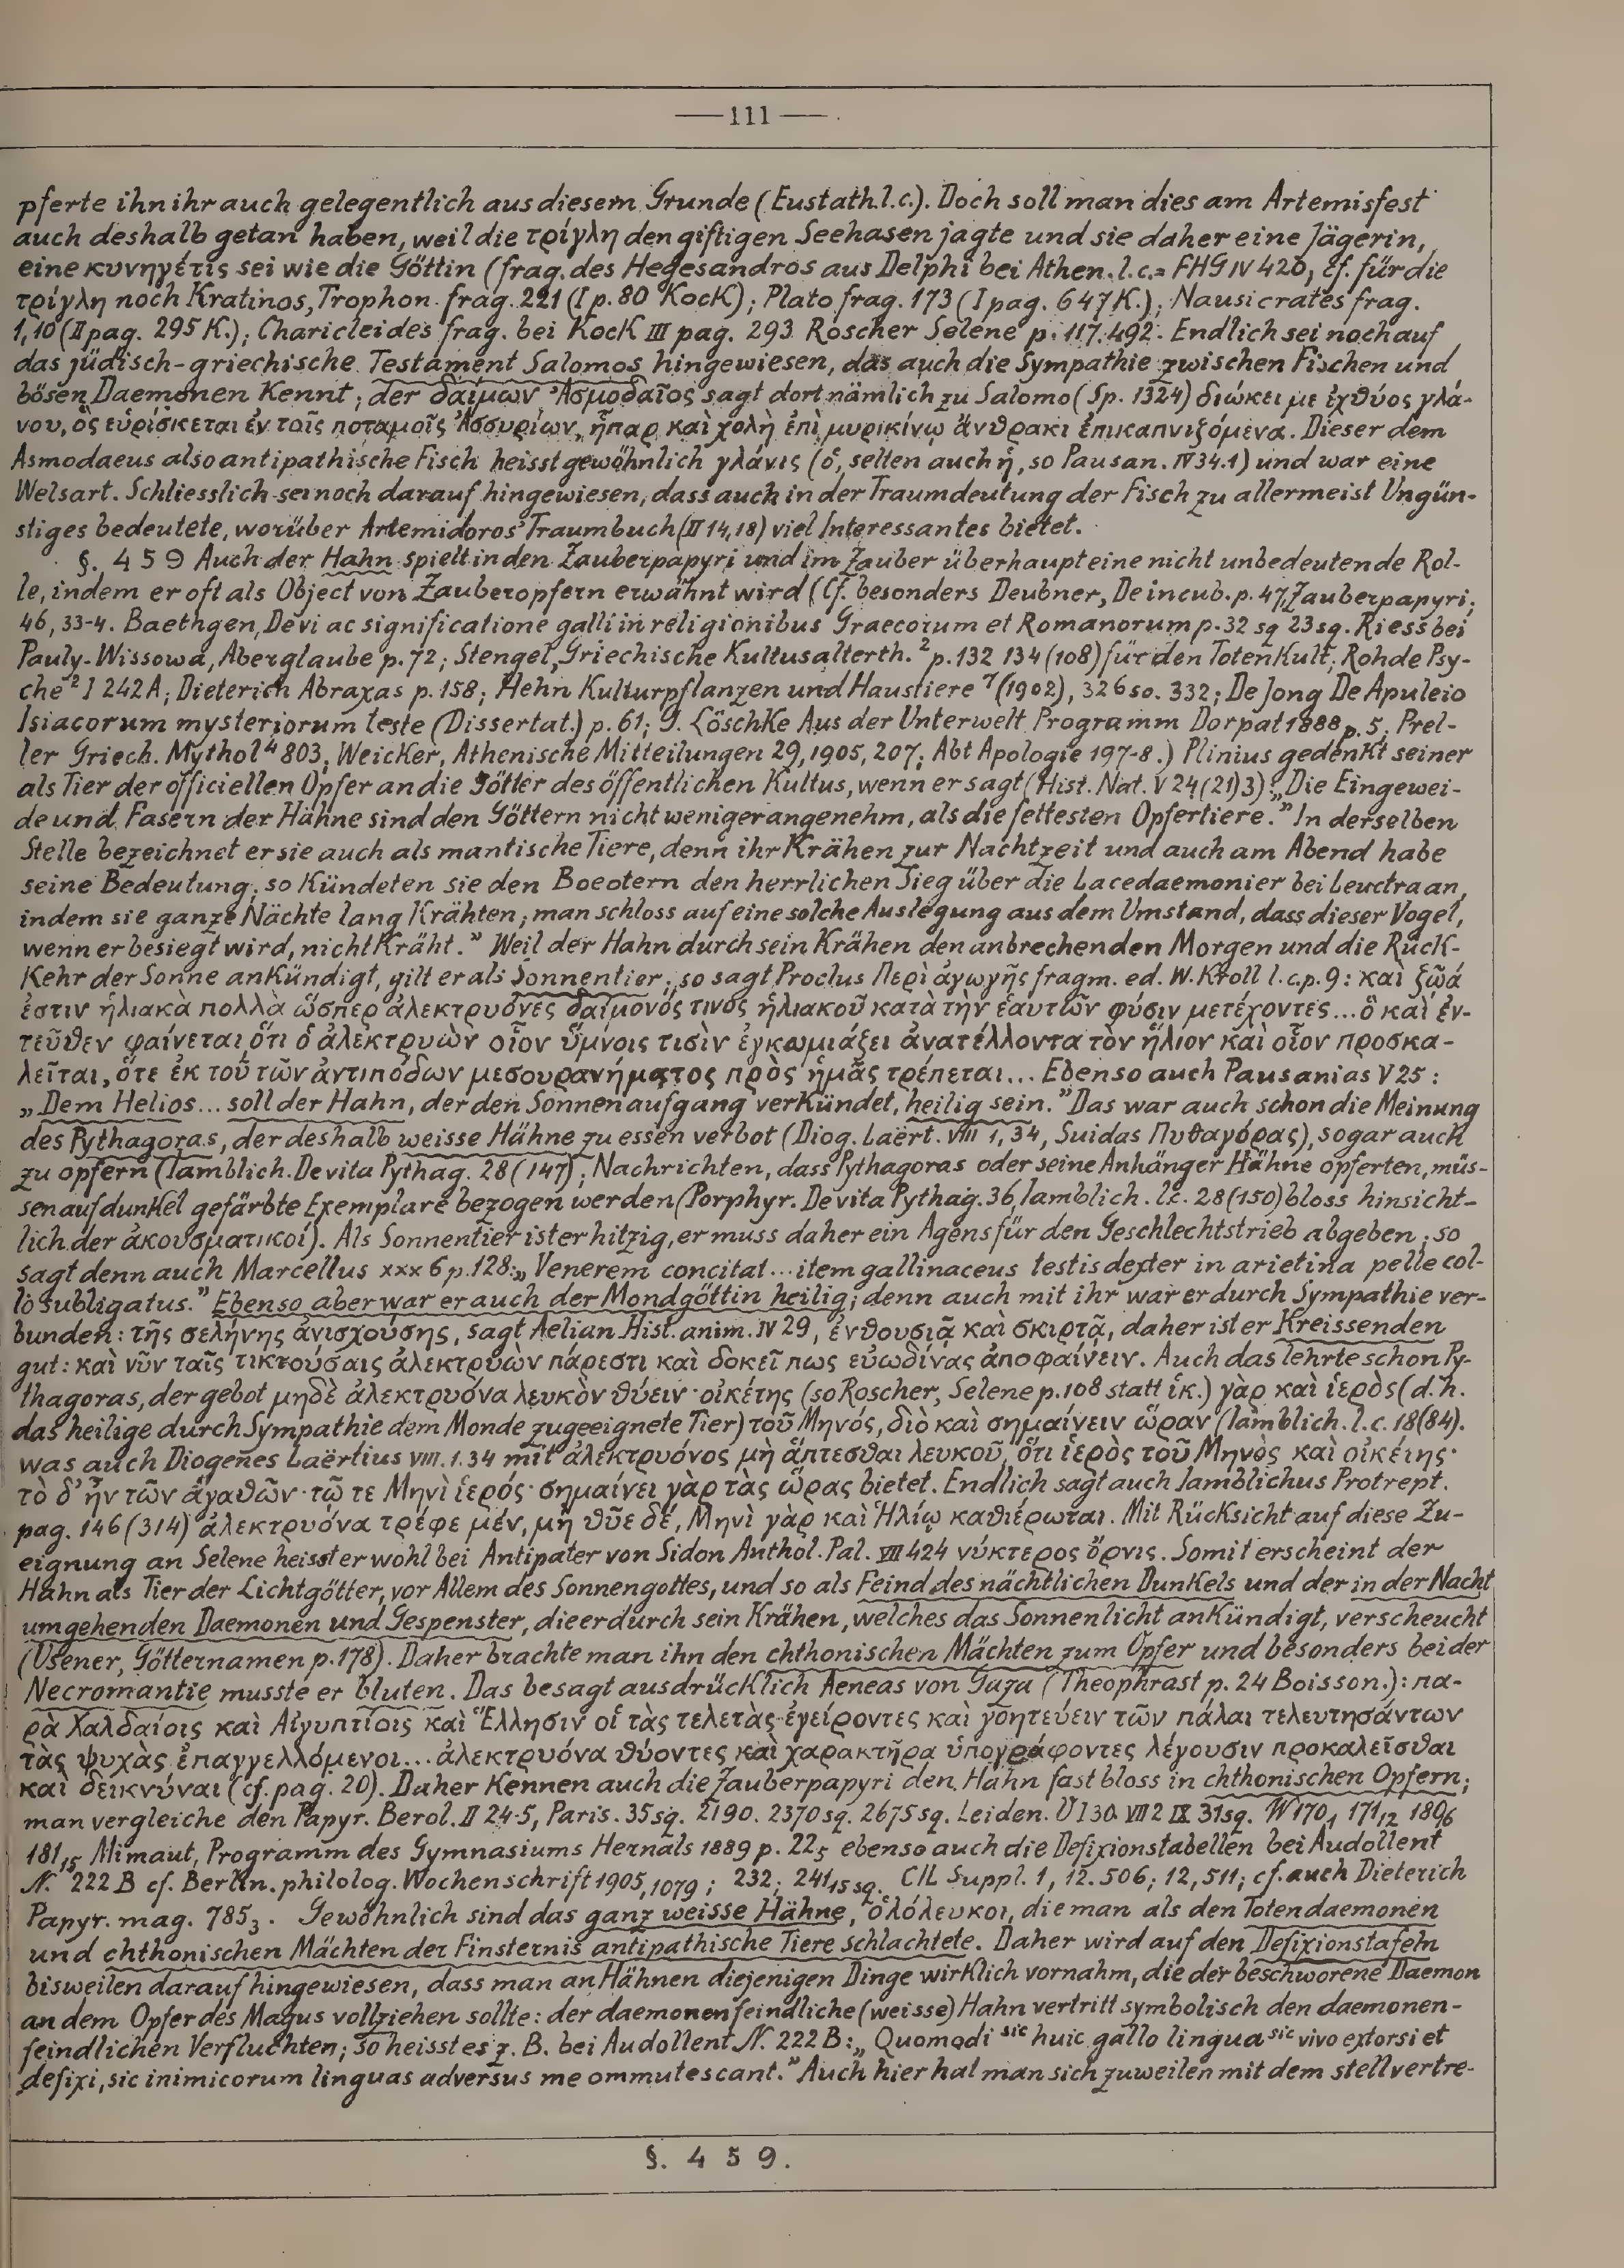 —111—
pferte ihn ihr auch gelegentlich aus diesem Grunde (Eustath.l.c.). Doch soll man dies am Artemisfest
auch deshalb getan haben, weil die τρίγλη den giftigen Seehasen jagte und sie daher eine Jägerin,
eine κυνηγέτις sei wie die Göttin (frag. des Hegesandros aus Delphi bei Athen. l.c.= FHG IV 420, cf. für die
τρίγλη noch Kratinos, Trophon. frag. 221 (I p. 80 Kock); Plato frag. 173 (I pag. 647 K.); Nausicrates frag.
1,10 (II pag. 295 K.); Charicleides frag. bei Kock III pag. 293 Roscher Selene p. 117.492. Endlich sei noch auf
das jüdisch-griechische Testament Salomos hingewiesen, das auch die Sympathie zwischen Fischen und
bösen Daemonen Kennt; der δαίμων Ἀσμοδαῖος sagt dort nämlich zu Salomo (Sp. 1324) διώκει με ἰχθύος γλά-
νου, ὃς εὑρίσκεται ἐν τοῖς ποταμοῖς Ἀσσυρίων, ἧπαρ καὶ χολὴ ἐπὶ μυρικίνῳ ἄνθρακι ἐπικαπνιζόμενα. Dieser dem
Asmodaeus also antipathische Fisch heisst gewöhnlich γλάνις (ὁ, selten auch ἡ, so Pausan. IV 34.1) und war eine
Welsart. Schliesslich sei noch darauf hingewiesen, dass auch in der Traumdeutung der Fisch zu allermeist Ungün-
stiges bedeutete, worüber Artemidoros' Traumbuch (II 14,18) viel Interessantes bietet.
§. 459 Auch der Hahn spielt in den Zauberpapyri und im Zauber überhaupt eine nicht unbedeutende Rol-
le, indem er oft als Object von Zauberopfern erwähnt wird (Cf. besonders Deubner, De incub. p. 47, Zauberpapyri;
46, 33-4. Baethgen, De vi ac significatione galli in religionibus Graecorum et Romanorum p. 32 sq 23 sq. Riess bei
Pauly-Wissowa, Aberglaube p. 72; Stengel, Griechische Kultusalterth.² p. 132 134 (108) für den Totenkult; Rohde Psy-
che² I 242 A; Dieterich Abraxas p. 158; Hehn Kulturpflanzen und Haustiere⁷ (1902), 326 so. 332; De Jong De Apuleio
Isiacorum mysteriorum teste (Dissertat.) p. 61; G. Löschke Aus der Unterwelt Programm Dorpat 1888 p. 5. Prel-
ler Griech. Mythol⁴ 803; Weicker, Athenische Mitteilungen 29, 1905, 207; Abt Apologie 197-8.) Plinius gedenkt seiner
als Tier der officiellen Opfer an die Götter des öffentlichen Kultus, wenn er sagt (Hist. Nat. V 24 (21) 3) „Die Eingewei-
de und Fasern der Hähne sind den Göttern nicht weniger angenehm, als die fettesten Opfertiere.” In derselben
Stelle bezeichnet er sie auch als mantische Tiere, denn ihr Krähen zur Nachtzeit und auch am Abend habe
seine Bedeutung; so Kündeten sie den Boeotern den herrlichen Sieg über die Lacedaemonier bei Leuctra an,
indem sie ganze Nächte lang Krähten; man schloss auf eine solche Auslegung aus dem Umstand, dass dieser Vogel,
wenn er besiegt wird, nicht Kräht.” Weil der Hahn durch sein Krähen den anbrechenden Morgen und die Rück-
Kehr der Sonne anKündigt, gilt er als Sonnentier; so sagt Proclus Περὶ ἀγωγῆς fragm. ed. W. Kroll l.c.p. 9: καὶ ζῷά
ἐστιν ἡλιακὰ πολλὰ ὥσπερ ἀλεκτρυόνες δαίμονός τινος ἡλιακοῦ κατὰ τὴν ἑαυτῶν φύσιν μετέχοντες... ὃ καὶ ἐν-
τεῦθεν φαίνεται, ὅτι ὁ ἀλεκτρυὼν οἷον ὕμνοις τισὶν ἐγκωμιάζει ἀνατέλλοντα τὸν ἥλιον καὶ οἷον προσκα-
λεῖται, ὅτε ἐκ τοῦ τῶν ἀντιπόδων μεσουρανήματος πρὸς ἡμᾶς τρέπεται... Ebenso auch Pausanias V 25:
„Dem Helios... soll der Hahn, der den Sonnenaufgang verKündet, heilig sein.” Das war auch schon die Meinung
des Pythagoras, der deshalb weisse Hähne zu essen verbot (Diog. Laërt. VIII 1,34, Suidas Πυθαγόρας), sogar auch
zu opfern (Iamblich. De vita Pythag. 28 (147); Nachrichten, dass Pythagoras oder seine Anhänger Hähne opferten, müs-
sen auf dunKel gefärbte Exemplare bezogen werden (Porphyr. De vita Pythag. 36, Iamblich. l.c. 28 (150) bloss hinsicht-
lich der ἀκουσματικοί). Als Sonnentier ist er hitzig, er muss daher ein Agens für den Geschlechtstrieb abgeben; so
sagt denn auch Marcellus xxx 6 p. 128: „Venerem concitat... item gallinaceus testis dexter in arietina pelle col-
lo subligatus.” Ebenso aber war er auch der Mondgöttin heilig; denn auch mit ihr war er durch Sympathie ver-
bunden: τῆς σελήνης ἀνισχούσης, sagt Aelian Hist. anim. IV 29, ἐνθουσιᾷ καὶ σκιρτᾷ, daher ist er Kreissenden
gut: καὶ νῦν ταῖς τικτούσαις ἀλεκτρυὼν πάρεστι καὶ δοκεῖ πως εὐωδίνας ἀποφαίνειν. Auch das lehrte schon Py-
thagoras, der gebot μηδὲ ἀλεκτρυόνα λευκὸν θύειν· οἰκέτης (so Roscher, Selene p. 108 statt ἱκ.) γὰρ καὶ ἱερὸς (d.h.
das heilige durch Sympathie dem Monde zugeeignete Tier) τοῦ Μηνός, διὸ καὶ σημαίνειν ὥραν (Iamblich. l.c. 18 (84).
was auch Diogenes Laërtius VIII. 1. 34 mit ἀλεκτρυόνος μὴ ἅπτεσθαι λευκοῦ, ὅτι ἱερὸς τοῦ Μηνὸς καὶ οἰκέτης·
τὸ δ' ἦν τῶν ἀγαθῶν· τῷ τε Μηνὶ ἱερός· σημαίνει γὰρ τὰς ὥρας bietet. Endlich sagt auch Iamblichus Protrept.
pag. 146 (314) ἀλεκτρυόνα τρέφε μέν, μὴ θῦε δέ, Μηνὶ γὰρ καὶ Ἡλίῳ καθιέρωται. Mit RücKsicht auf diese Zu-
eignung an Selene heisst er wohl bei Antipater von Sidon Anthol. Pal. VII 424 νύκτερος ὄρνις. Somit erscheint der
Hahn als Tier der Lichtgötter, vor Allem des Sonnengottes, und so als Feind des nächtlichen DunKels und der in der Nacht
umgehenden Daemonen und Gespenster, die er durch sein Krähen, welches das Sonnenlicht anKündigt, verscheucht
(Usener, Götternamen p. 178). Daher brachte man ihn den chthonischen Mächten zum Opfer und besonders bei der
Necromantie musste er bluten. Das besagt ausdrücKlich Aeneas von Gaza (Theophrast p. 24 Boisson.): πα-
ρὰ Χαλδαίοις καὶ Αἰγυπτίοις καὶ Ἕλλησιν οἱ τὰς τελετὰς ἐγείροντες καὶ γοητεύειν τῶν πάλαι τελευτησάντων
τὰς ψυχὰς ἐπαγγελλόμενοι... ἀλεκτρυόνα θύοντες καὶ χαρακτῆρα ὑπογράφοντες λέγουσιν προκαλεῖσθαι
καὶ δεικνύναι (cf. pag. 20). Daher Kennen auch die Zauberpapyri den Hahn fast bloss in chthonischen Opfern;
man vergleiche den Papyr. Berol. II 24-5, Paris. 35 sq. 2190. 2370 sq. 2675 sq. Leiden. V I 30 VIII 2 IX 31 sq. W 170,1 171,12 180,6
181,15 Mimaut, Programm des Gymnasiums Hernals 1889 p. 22,5 ebenso auch die Defixionstabellen bei Audollent
N. 222 B cf. Berlin. philolog. Wochenschrift 1905, 1079; 232; 241,15 sq. CIL Suppl. 1, 12. 506; 12, 511; cf. auch Dieterich
Papyr. mag. 785,3. Gewöhnlich sind das ganz weisse Hähne, ὁλόλευκοι, die man als den Totendaemonen
und chthonischen Mächten der Finsternis antipathische Tiere schlachtete. Daher wird auf den Defixionstafeln
bisweilen darauf hingewiesen, dass man an Hähnen diejenigen Dinge wirKlich vornahm, die der beschworene Daemon
an dem Opfer des Magus vollziehen sollte: der daemonenfeindliche (weisse) Hahn vertritt symbolisch den daemonen-
feindlichen Verfluchten; so heisst es z. B. bei Audollent N. 222 B: „Quomodi sic huic gallo lingua sic vivo extorsi et
defixi, sic inimicorum linguas adversus me ommutescant.” Auch hier hat man sich zuweilen mit dem stellvertre-
§. 459.